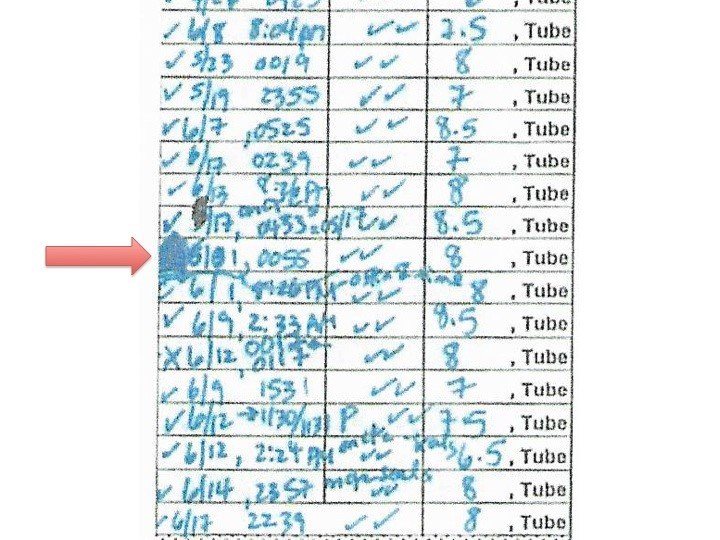 ✓ 6/8 8:04pm ✓✓ 7.5 , Tube
✓ 5/23 0019 ✓✓ 8 , Tube
✓ 5/19 2355 ✓✓ 7 , Tube
✓ 6/7 , 0525 ✓✓ 8.5 , Tube
✓ 6/17 0239 ✓✓ 7 , Tube
✓ 6/13 ✓✓ 8 , Tube
✓ /17, 0433 05/17 ✓✓ 8.5 , Tube
0055 ✓✓ 8 , Tube
6/1 ✓✓ 8 , Tube
✓ 6/9, 2:33 AM ✓✓ 8.5 , Tube
X 6/12, 0117 ✓✓ 8 , Tube
✓ 6/9 1531 ✓✓ 7 , Tube
✓ 6/12 → 1130/1131 P ✓✓ 7.5 , Tube
✓ 6/12, 2:24 PM ✓✓ 6.5 , Tube
✓ 6/14 , 2357 ✓✓ 8 , Tube
✓ 6/17 2239 ✓✓ 8 , Tube